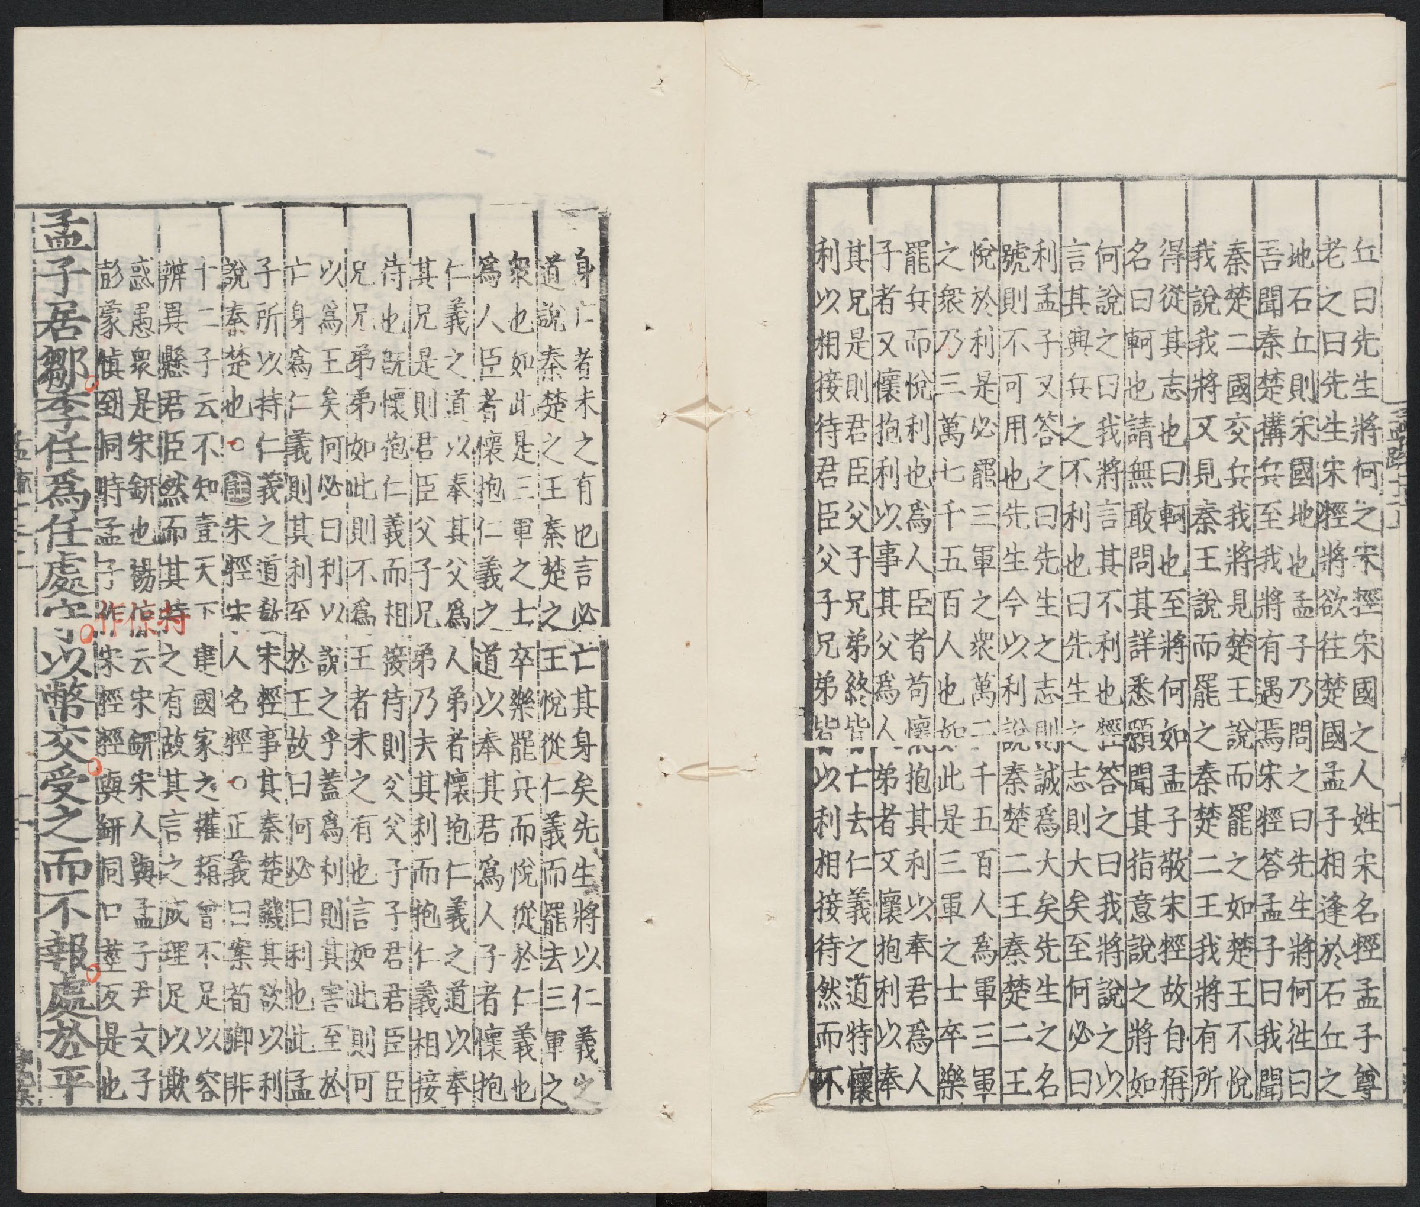 丘曰先生將何之宋牼宋國之人姓宋名牼孟子尊
老之曰先生宋牼將欲往楚國孟子相逢於石丘之
地石丘則宋國地也孟子乃問之曰先生將何徃曰
吾聞秦楚搆兵至我將有遇焉宋牼答孟子曰我聞
秦楚二國交兵我將見楚王說而罷之如楚王不悅
我說我將又見秦王說而罷之秦楚二王我將有所
得從其志也曰軻也至將何如孟子敬宋牼故自稱
名曰軻也請無敢問其詳悉願聞其指意說之將如
何說之曰我將言其不利也牼答之曰我將說之以
言其興兵之不利也曰先生之志則大矣至何必曰
利孟子又答之曰先生之志則誠爲大矣先生之名
號則不可用也先生今以利說秦楚二王秦楚二王
悅於利是必罷三軍之衆萬二千五百人爲軍三軍
之衆乃三萬七千五百人也如此是三軍之士卒樂
罷兵而悅利也爲人臣者苟懷抱其利以奉君爲人
子者又懷抱利以事其父爲人弟者又懷抱利以奉
其兄是則君臣父子兄弟終皆亡去仁義之道特懷
利以相接待君臣父子兄弟皆以利相接待然而不
身亡者未之有也言必亡其身矣先生將以仁義之
道說秦楚之王秦楚之王悅從仁義而罷去三軍之
衆也如此是三軍之士卒樂罷兵而悅從於仁義也
爲人臣者懷抱仁義之道以奉其君爲人子者懷抱
仁義之道以奉其父爲人弟者懷抱仁義之道以奉
其兄是則君臣父子兄弟乃去其利而抱仁義相接
待也旣懷抱仁義而相接待則父父子子君君臣臣
兄兄弟弟如此則不爲王者未之有也言如此則可
以爲王矣何必曰利以說之乎蓋爲利則其害至於
亡身爲仁義則其利至於王故曰何必曰利也此孟
子所以持仁義之道敎宋牼事其秦楚譏其欲以利
說秦楚也。注宋牼宋人名牼。正義曰案荀卿非
十二子云不知壹天下建國家之權稱曾不足以容
辨異懸君臣然而其持之有故其言之成理足以欺
惑愚衆是宋鈃也楊倞云宋鈃宋人與孟子尹文子
彭蒙愼到同時孟子作宋牼牼與鈃同口莖反是也
孟子居鄒季任爲任處守以幣交受之而不報處於平
持
倞
作
孟疏十二上
十